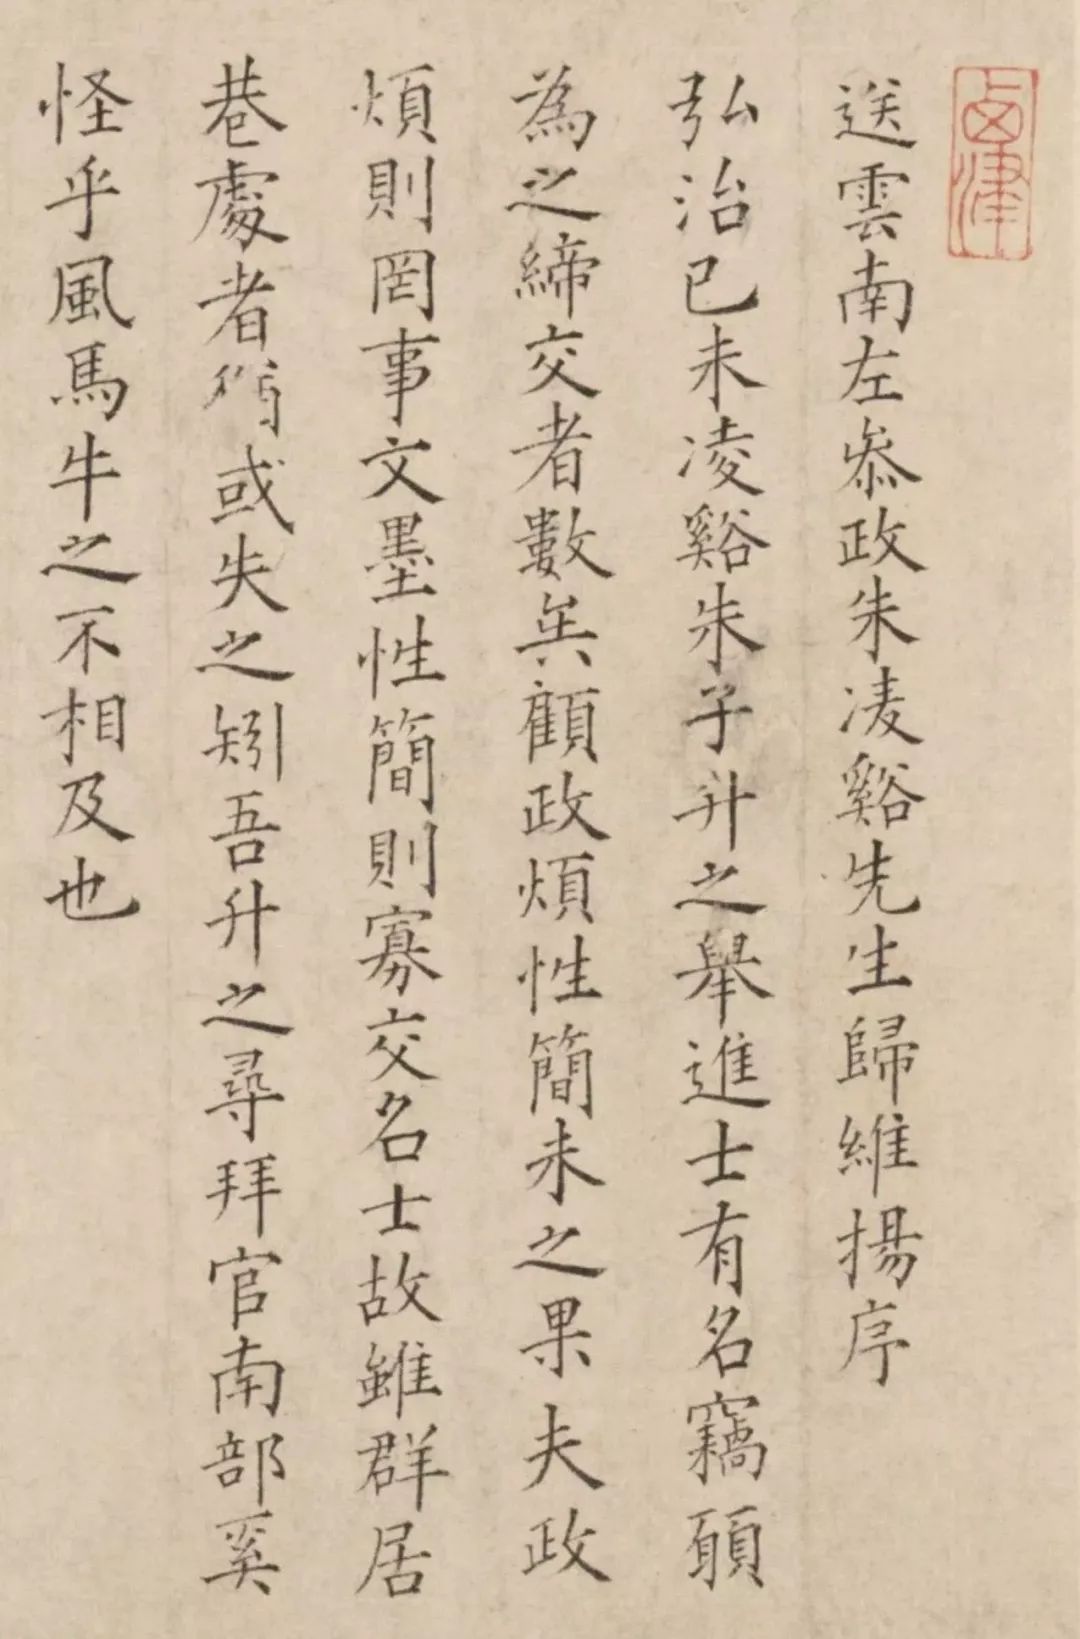 送雲南左叅政朱凌谿先生歸維揚序
弘治已未凌谿朱子升之舉進士有名竊願
為之締交者數矣顧政煩性簡未之果夫政
煩則罔事文墨性簡則寡交名士故雖群居
巷處者猶或失之矧吾升之尋拜官南部奚
怪乎風馬牛之不相及也